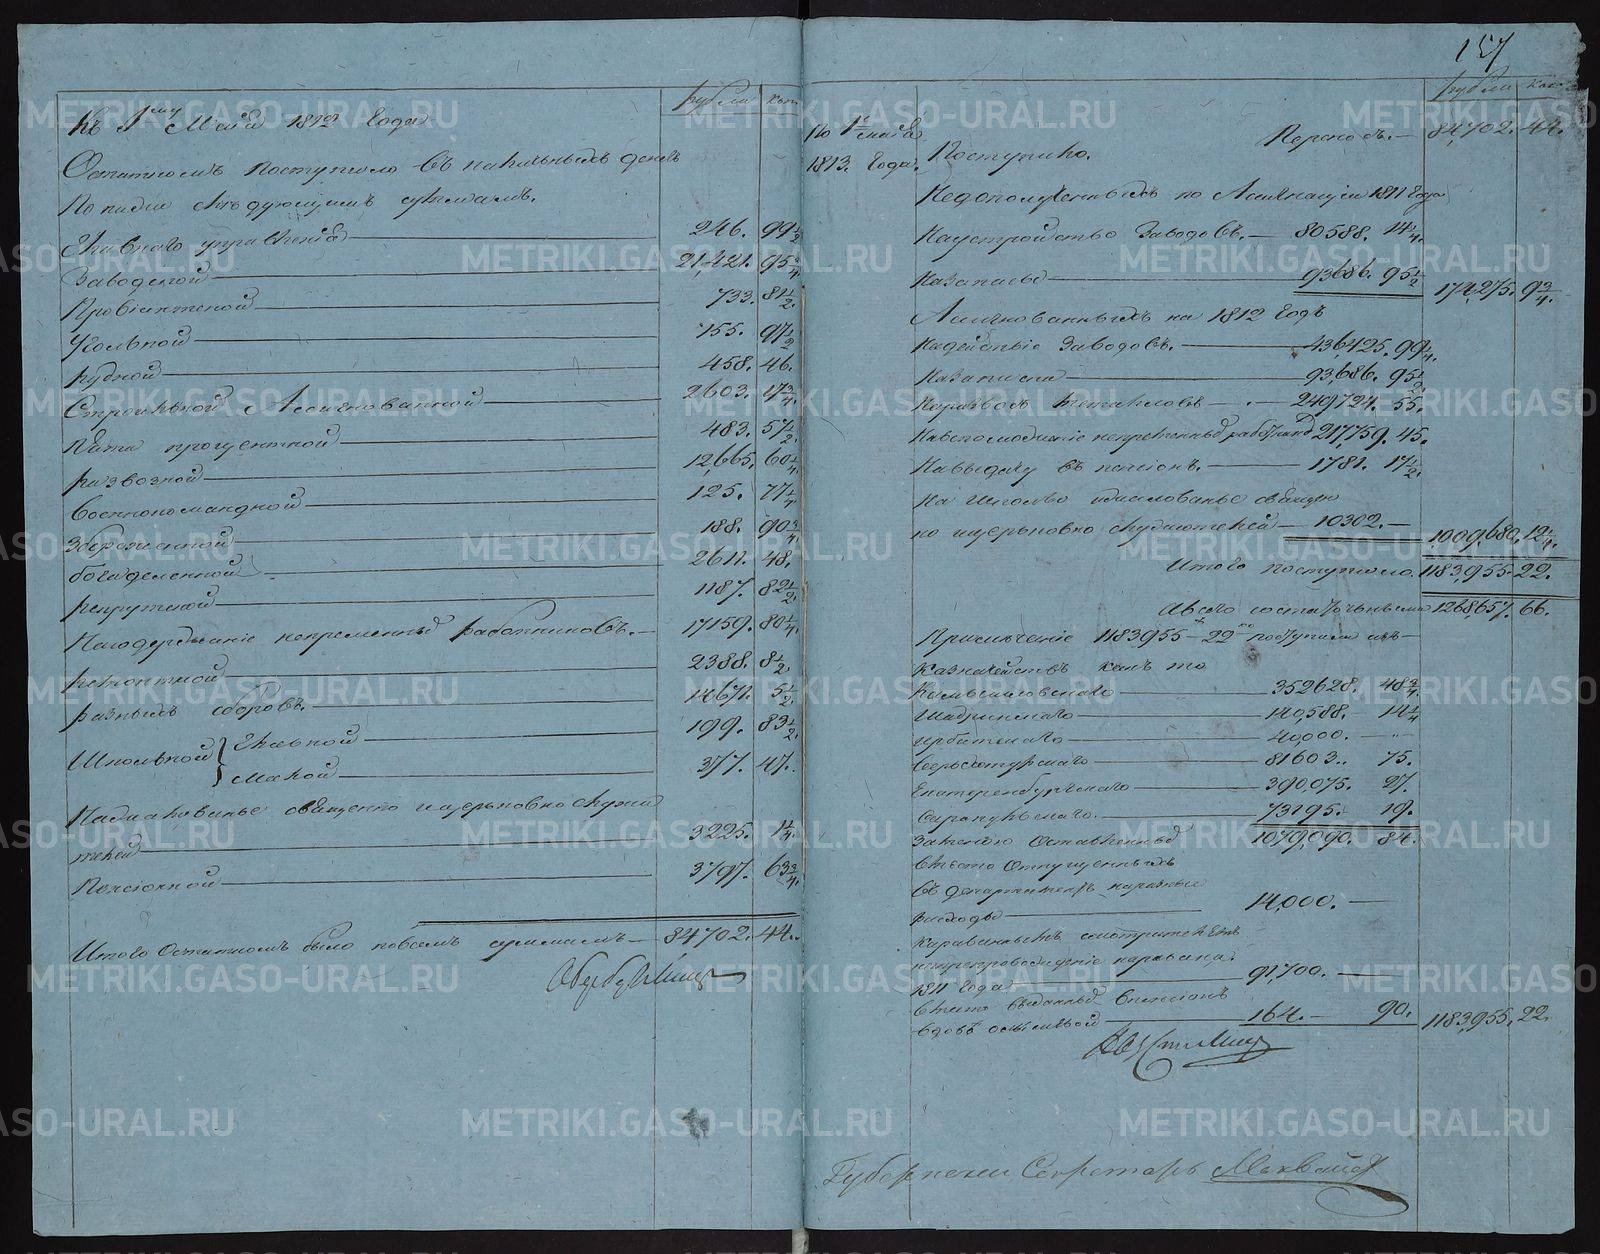 157
рубли коп
Къ 1му Маія 1812 Года
Остаткомъ поступило въ наличныхъ деньгахъ
По ниже слѣдующимъ суммамъ.
Главнаго управленія 246. 99 1/2
Заводской 21421. 95 3/4
Провіантской 733. 81 1/2
Угольной 155. 97 1/2
Рудной 458. 46.
Строильной Ассигнованной 2603. 17 3/4
Пяти процентной 483. 57 1/2
Развозной 12,665. 60 1/4
Военнокомандной 125. 77 1/4
Збереженной 188. 90 3/4
богаделенной 2611. 48.
рекрутской 1187. 82 1/2
На содержаніе непременных работниковъ. 17159. 80 1/4
ремонтной 2388. 8 1/2
разныхъ сборовъ. 14671. 5 1/2
Школьной } Главной 199. 83 1/2
Малой 377. 47.
На жалованье священно и церьковно служи
телей 3225. 1 1/4
Пенсіонной 3797. 63 3/4
Итого Остаткомъ было по всемъ суммамъ 84702. 44.
рубли коп
По 1е маія
1813. Года.
Переносъ. 84,702. 44.
Поступило.
Недополученныхъ по Ассигнаціи 1811 Года
На устройство Заводовъ. 80588. 14 1/4
На запасы 93686. 95 1/2 174,275. 9 3/4
Ассигнованныхъ на 1812 Годъ
На действіе Заводовъ. 436,425. 99 1/4
На запасы 93,686. 95 1/2
На развозъ металловъ 249724. 55.
На вспоможеніе непременныхъ работник 217,759. 45.
На выдачу въ пенсіонъ. 1781. 17 1/2
но церьковно служителей 10302.— 1,009,680, 12 1/4
Итого поступило. 1183,955. 22.
А всего состаточными 1268,657. 66.
Примечаніе 1183955 22 поступили изъ
Казначействъ какъ то
Камышловскаго 352628. 48 3/4
Шадринскаго 140,588. 14 1/4
Ирбитскаго 40,000. —
Верхотурскаго 81603. 75.
Екатеренбургскаго 390,075. 27.
Сарапульскаго. 73195. 19.
За темъ Оставленных 1079,090. 84.
вместо Отпущенныхъ
въ департаментъ на разные
расходы 14,000. —
Караваннымъ смотрителемъ
на препровожденіе каравана
1811 Года 91,700. —
164. — 90. 1183,955. 22.
Губернски Секретарь
METRIKI.GASO-URAL.RU